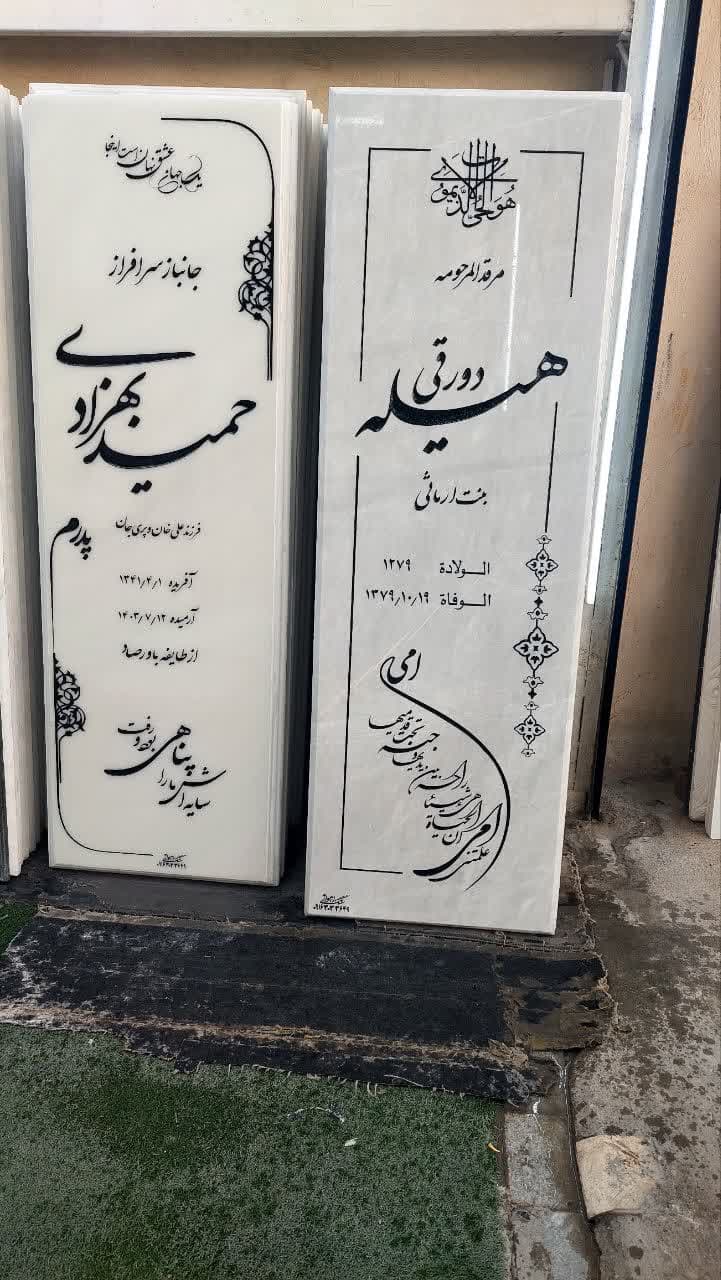 یک جهان عشق نهان است اینجا
جانباز سرافراز
حمید بهزادی
فرزند علی خان و پری جان
پدرم
آفریده ۱۳۴۱/۴/۱
آرمیده ۱۴۰۳/۷/۱۲
از طایفه باورصاد
رفت
بود و
پناهی
سایه اش ما را
هو الحی الذی لا یموت
مرقد المرحومه
هیله دورقی
بنت ارمائی
الولادة ۱۲۷۹
الوفاة ۱۳۷۹/۱۰/۱۹
امی
جنة تحت قدمیها
امی
علمتنی
ان الحیاة